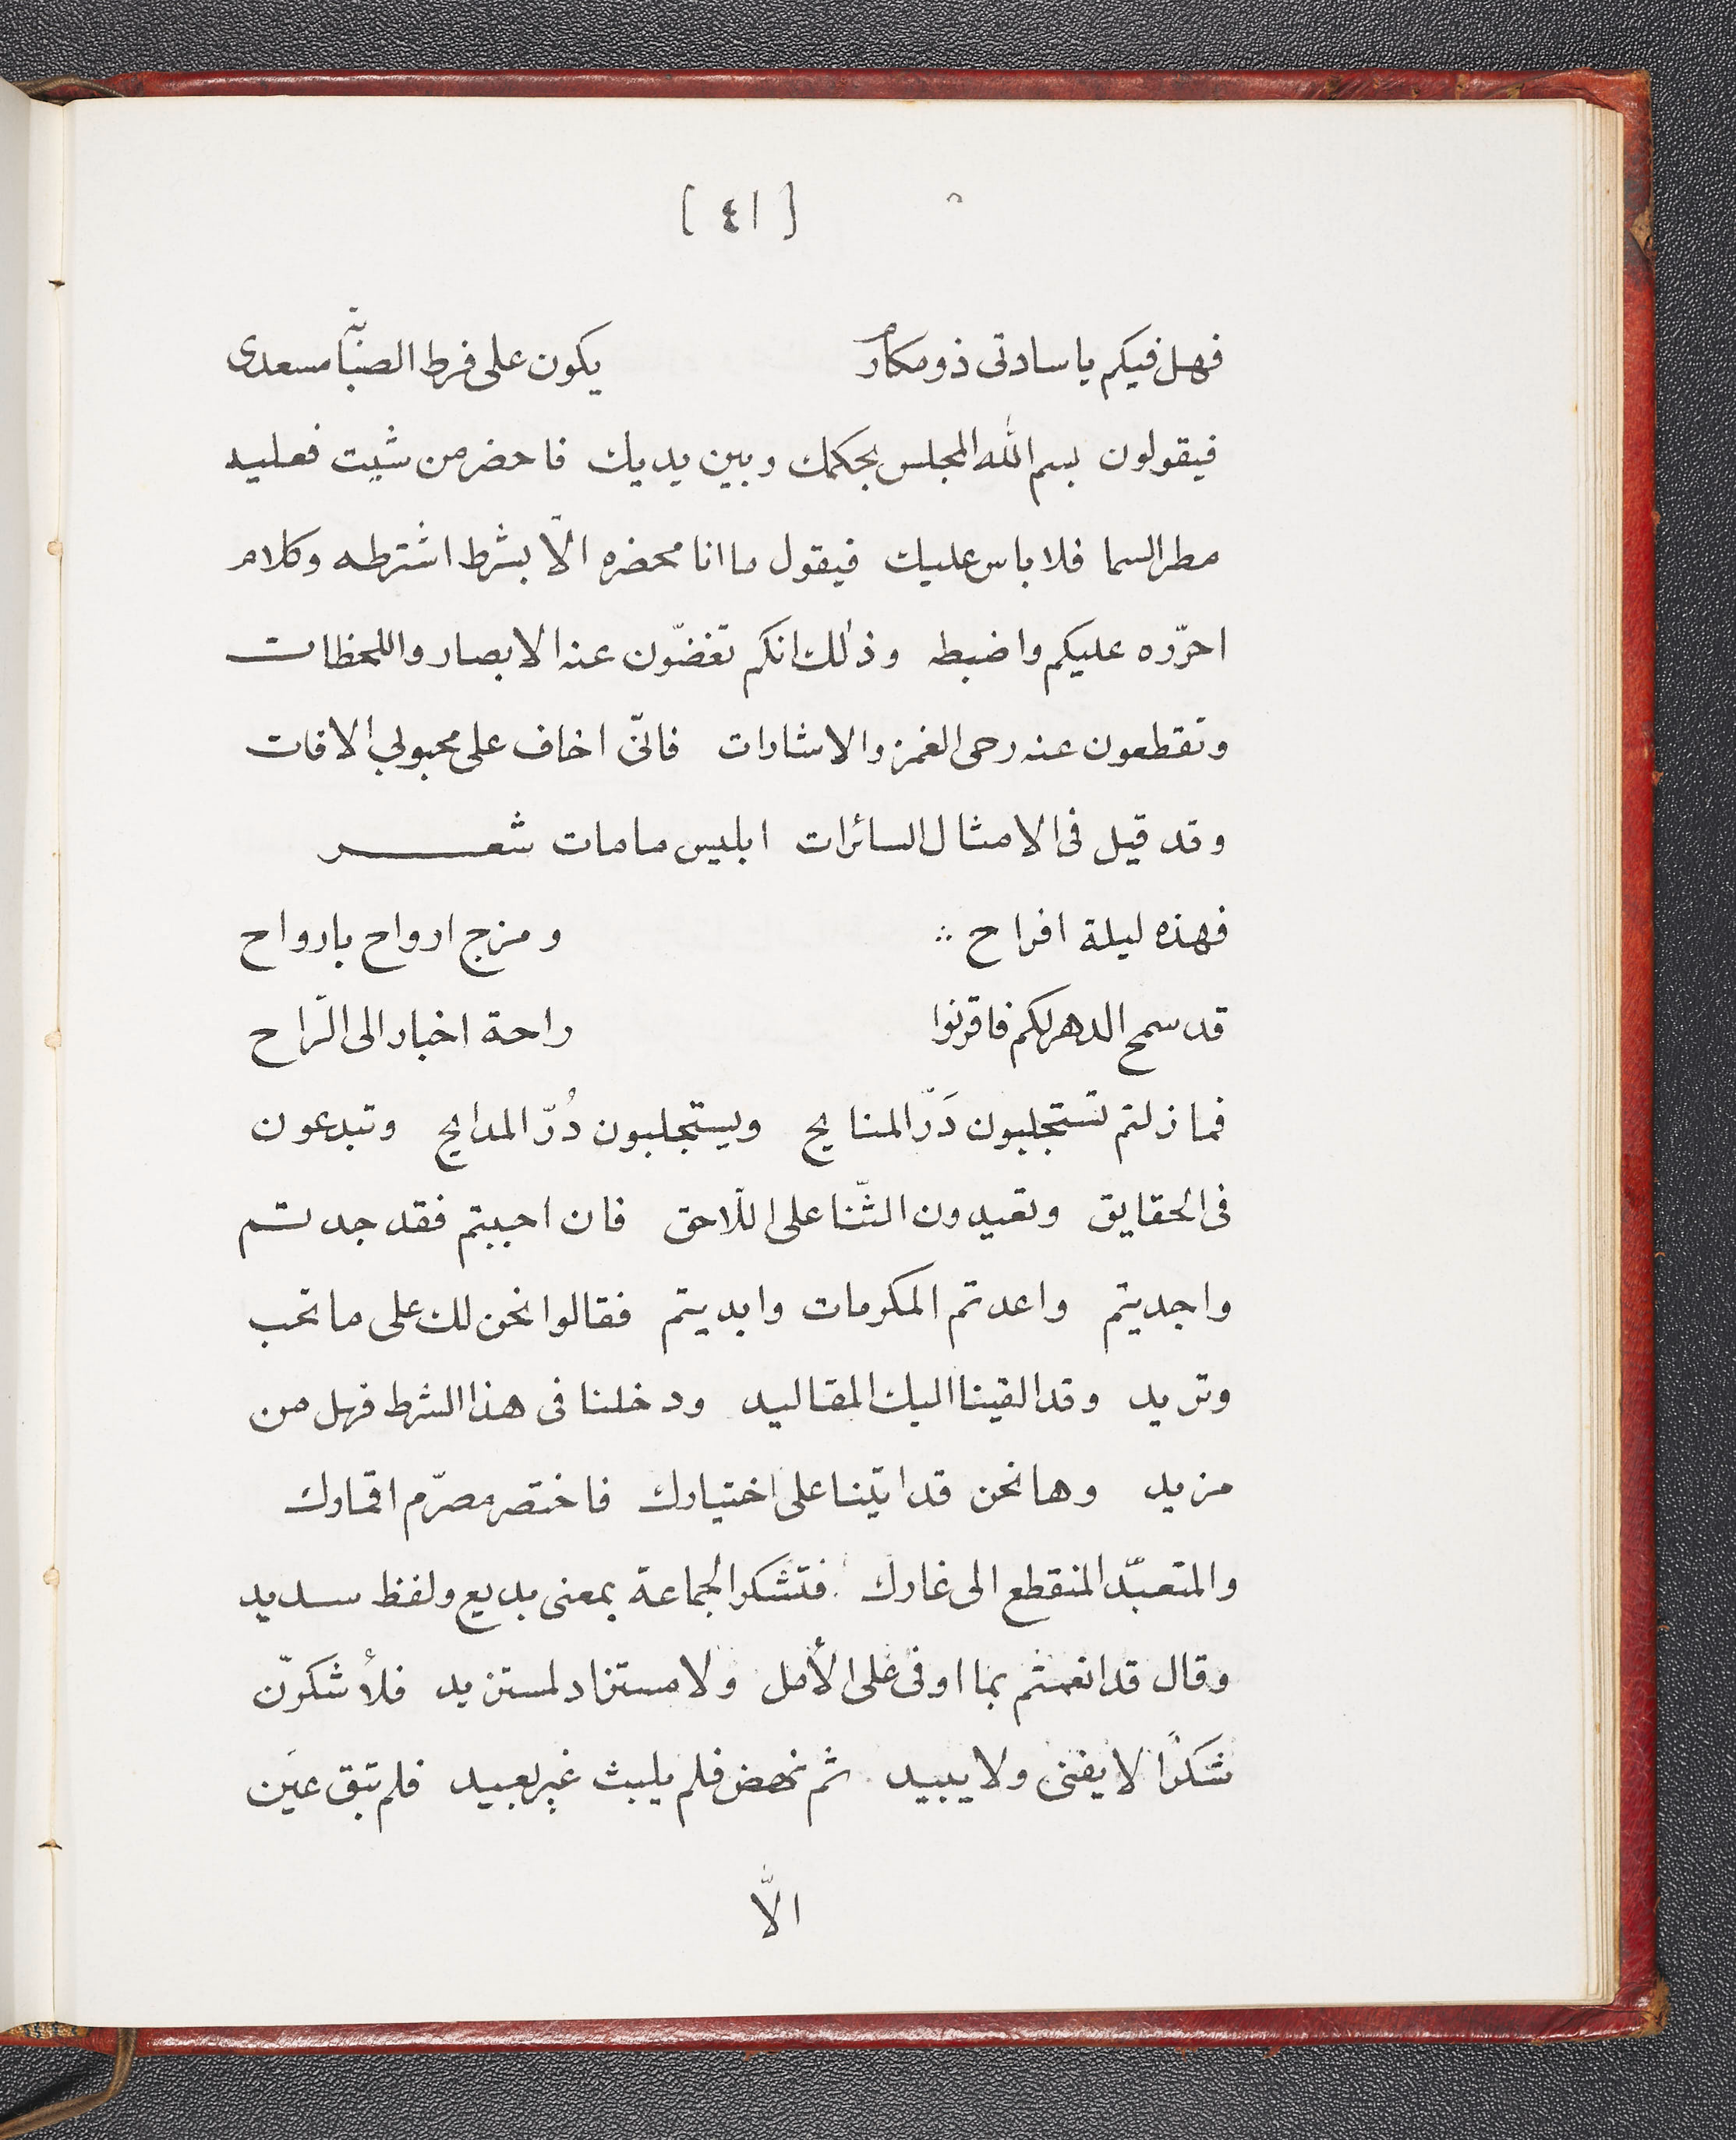 [ ٤١ ]
فهل فيكم يا سادتى ذو مكارم يكون على فرط الصبابة مسعدى
فيقولون بسم الله المجلس بحكمك وبين يديك فاحضر من شيت فعليه
مطر السما فلا باس عليك فيقول ما انا محضره الّا بشرط اشترطه وكلام
احرّره عليكم واضبطه وذلك انكم تغضّون عنه الابصار واللحظات
وتقطعون عنه رحى الغمز والاشارات فانّى اخاف على محبوبي الافات
وقد قيل فى الامثال السائرات ابليس ما مات شعر
فهذه ليلة افراح ومزج ارواح بارواح
قد سمح الدهر لكم فاقرنوا راحة اخبار الى الرّاح
فما زلتم تستجلبون دَرّ المنايح ويستجلبون دُرّ المدايح وتبدعون
فى الحقايق وتعيدون الثّنا على اللّاحق فان احببتم فقد جدتم
واجديتم واعدتم المكرمات وابديتم فقالوا نحن لك على ما تحب
وتريد وقد القينا اليك المقاليد ودخلنا فى هذا الشرط فهل من
مزيد وها نحن قد اتينا على اختيارك فاختصر مصرّم اقمارك
والمتعبّد المنقطع الى غارك فتشكر الجماعة بمعنى بديع ولفظ سديد
وقال قد انعمتم بما اوفى على الأمل ولا مستزاد لمستزيد فلأشكرنّ
شكرًا لا يفنى ولا يبيد ثم نهض فلم يلبث غير بعيد فلم تبق عين
الّا